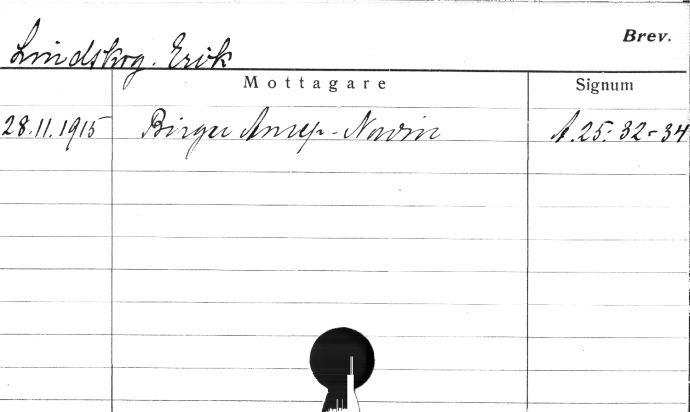 Brev.
Lindskog. Erik
Mottagare Signum
28.11.1915 Birger Anrep-Nordin A.25: 32-34